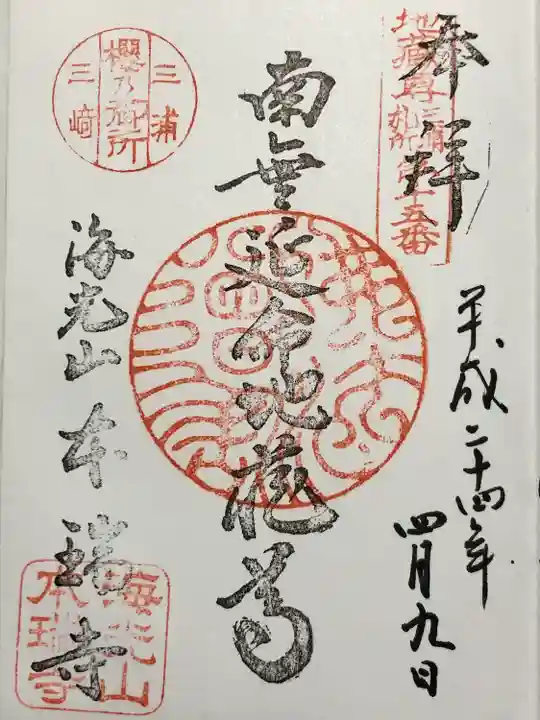 奉拝
地蔵尊三浦札所第十五番
平成二十四年
四月九日
南無延命地蔵尊
三浦
櫻乃御所
三﨑
海光山 本瑞寺
海光山
本瑞寺